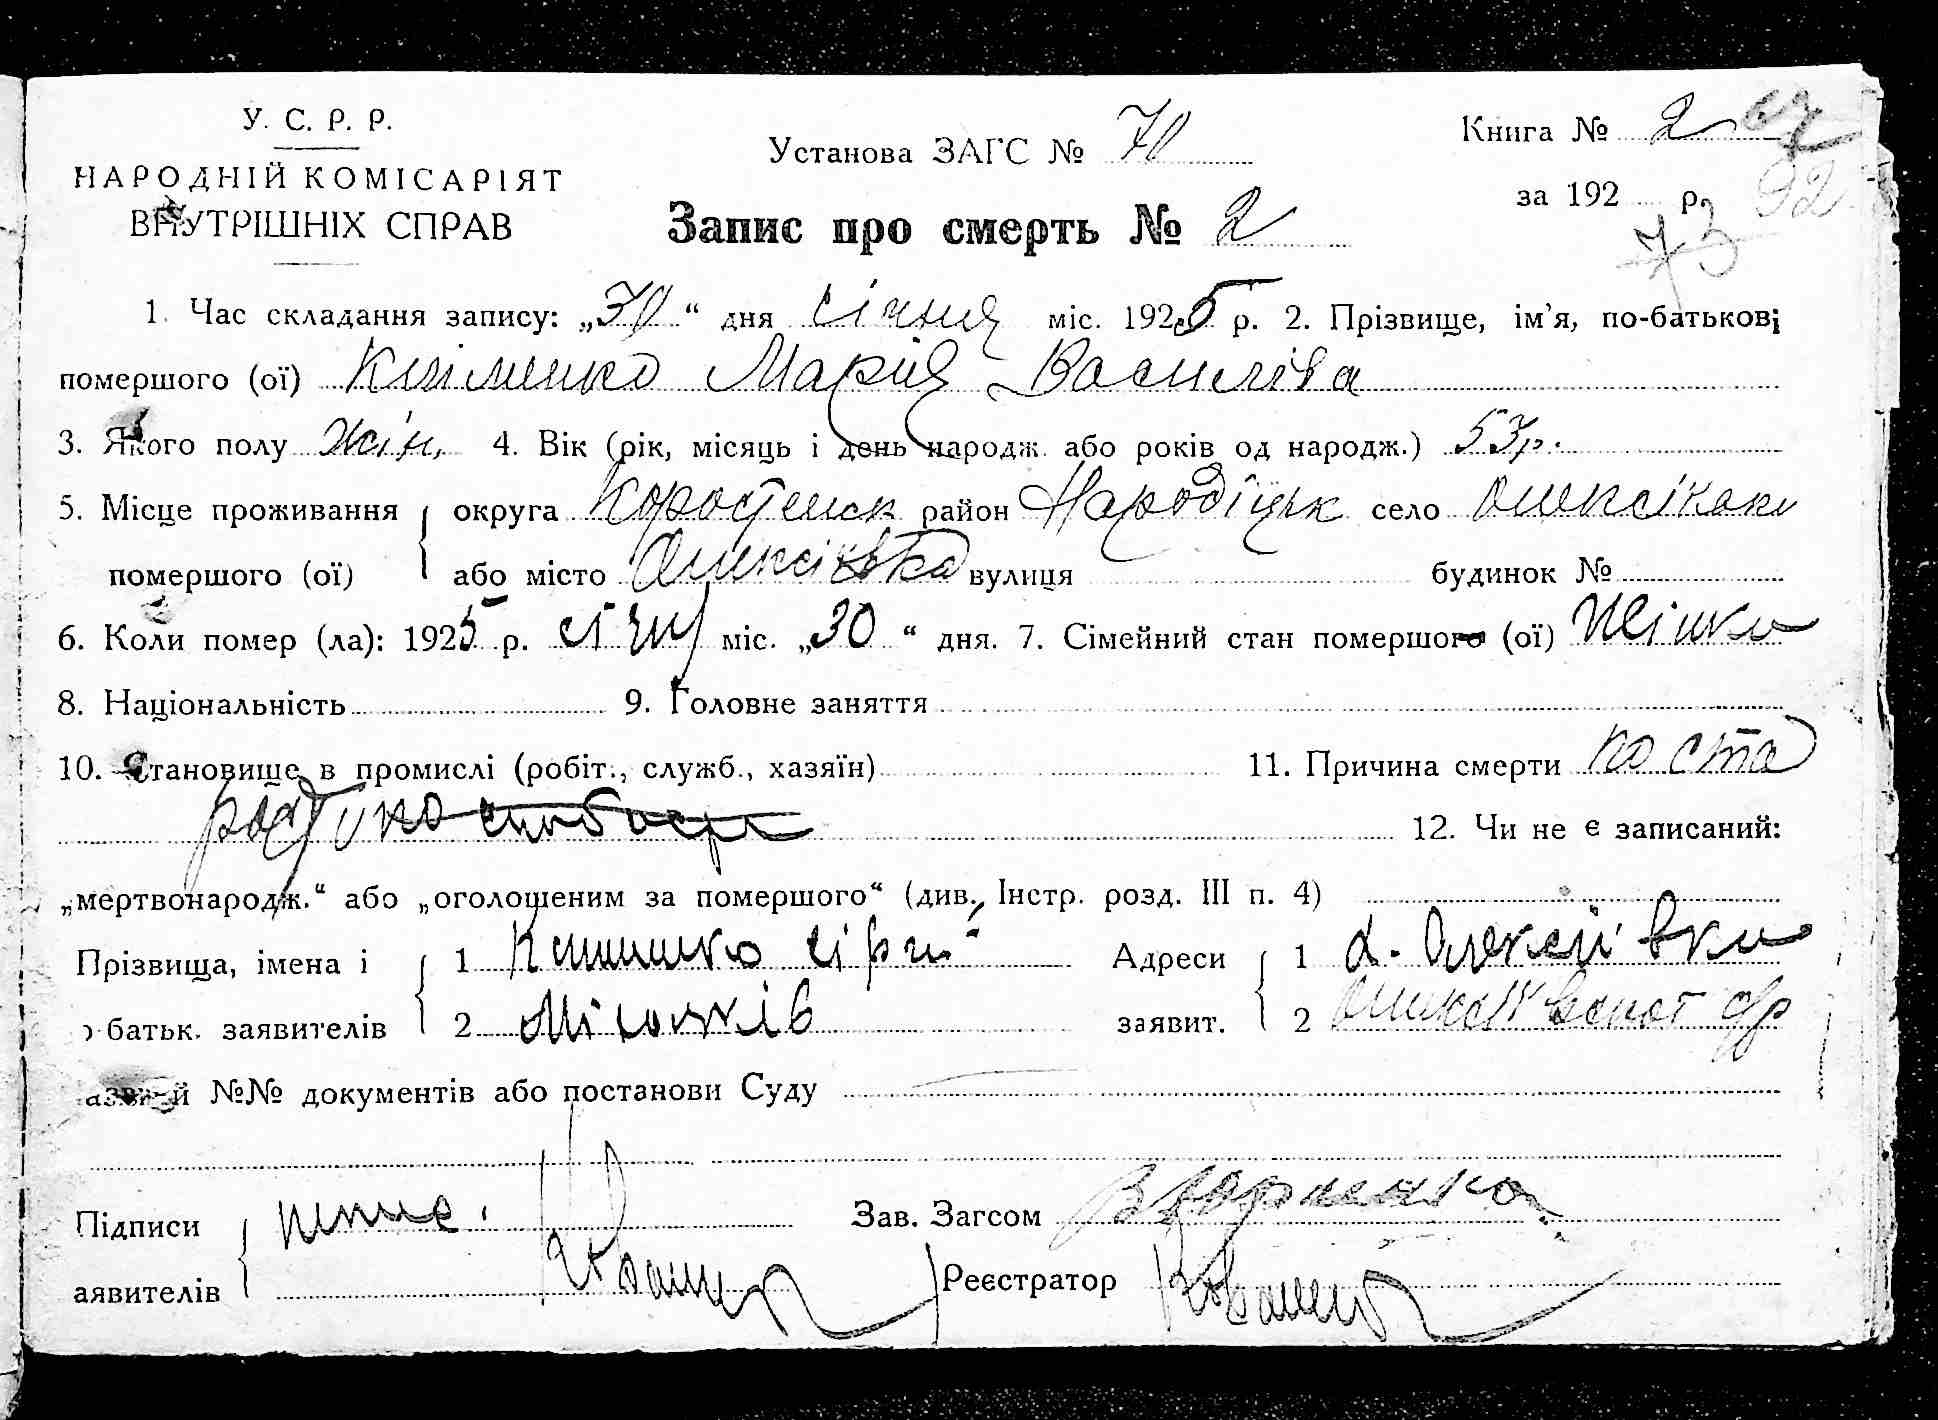 У. С. Р. Р.
НАРОДНІЙ КОМІСАРІЯТ
ВНУТРІШНІХ СПРАВ
Установа ЗАГС № 70
Запис про смерть № 2
Книга № 2
за 192 р.
73
92
1. Час складання запису: „30“ дня січня міс. 1925 р. 2. Прізвище, ім'я, по-батькові
помершого (ої) Клименко Марія Василіва
3. Якого полу жін. 4. Вік (рік, місяць і день народж. або років од народж.) 53р.
5. Місце проживання округа Коростенск район Народіцьк село Олексівки
помершого (ої) або місто Олексівка вулиця будинок №
6. Коли помер (ла): 1925 р. січн міс. „30“ дня. 7. Сімейний стан помершого (ої)
8. Національність 9. Головне заняття
10. Становище в промислі (робіт., служб., хазяїн) 11. Причина смерти
12. Чи не є записаний:
„мертвонародж.“ або „оголошеним за помершого“ (див. Інстр. розд. III п. 4)
Прізвища, імена і 1 Адреси 1 Олексеївки
батьк. заявителів 2 заявит. 2
№№ документів або постанови Суду
Підписи Зав. Загсом
аявителів Реєстратор